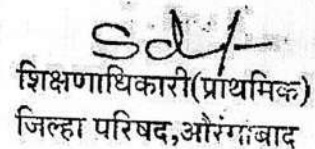 Sd/-
शिक्षणाधिकारी(प्राथमिक)
जिल्हा परिषद,औरंगाबाद